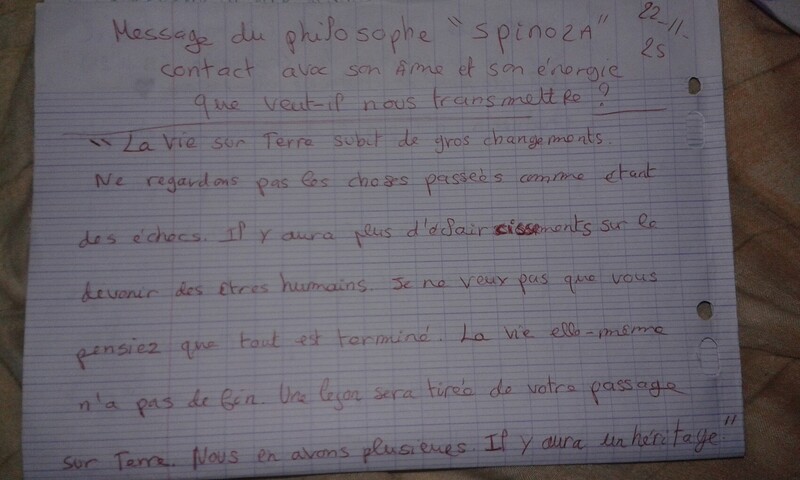 Message du philosophe "SPINOZA" 22-11-
25
contact avec son âme et son énergie
que veut-il nous transmettre ?
"La vie sur Terre subit de gros changements.
Ne regardons pas les choses passées comme étant
des échecs. Il y aura plus d'éclaircissements sur le
devenir des êtres humains. Je ne veux pas que vous
pensiez que tout est terminé. La vie elle-même
n'a pas de fin. Une leçon sera tirée de votre passage
sur Terre. Nous en avons plusieurs. Il y aura un héritage"